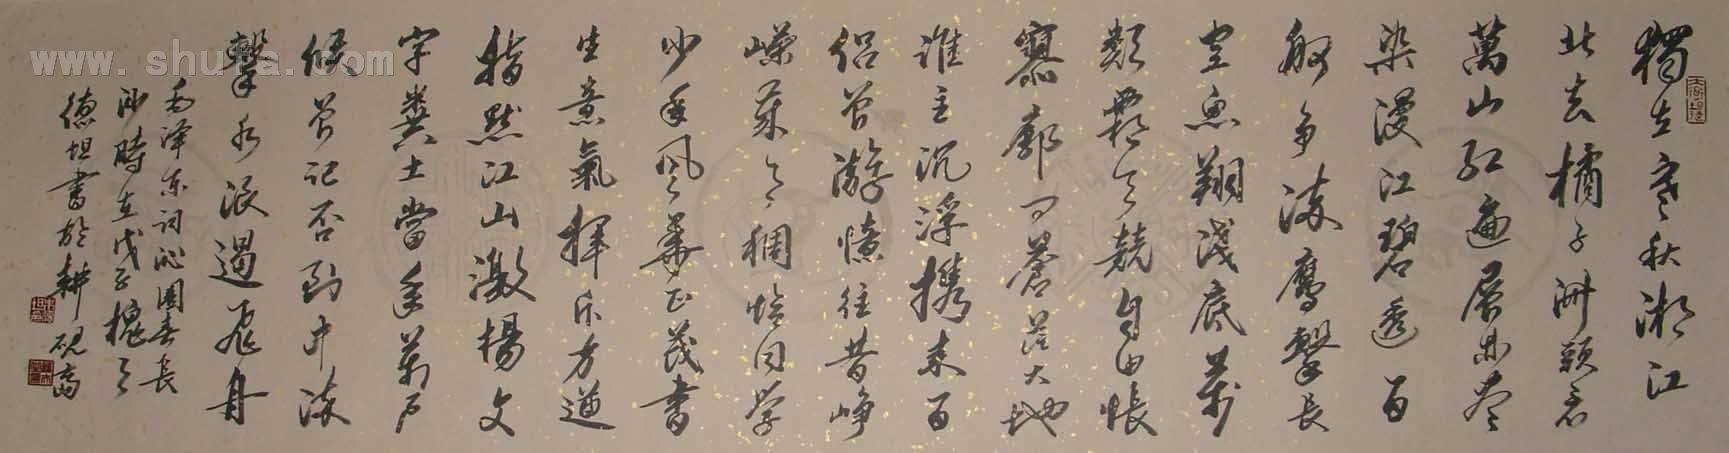 獨立寒秋湘江
北去橘子洲頭看
萬山紅遍層林盡
染漫江碧透百
舸争流鷹擊長
空魚翔淺底萬
類霜天競自由悵
寥廓问蒼茫大地
誰主沉浮携來百
侣曾游憶往昔崢
嶸歲月稠恰同學
少年風華正茂書
生意氣揮斥方遒
指點江山激揚文
字糞土當年萬户
侯曾記否到中流
擊水浪遏飛舟
毛澤東詞沁園春長
沙時在戊子槐月
德坦書於耕硯齋